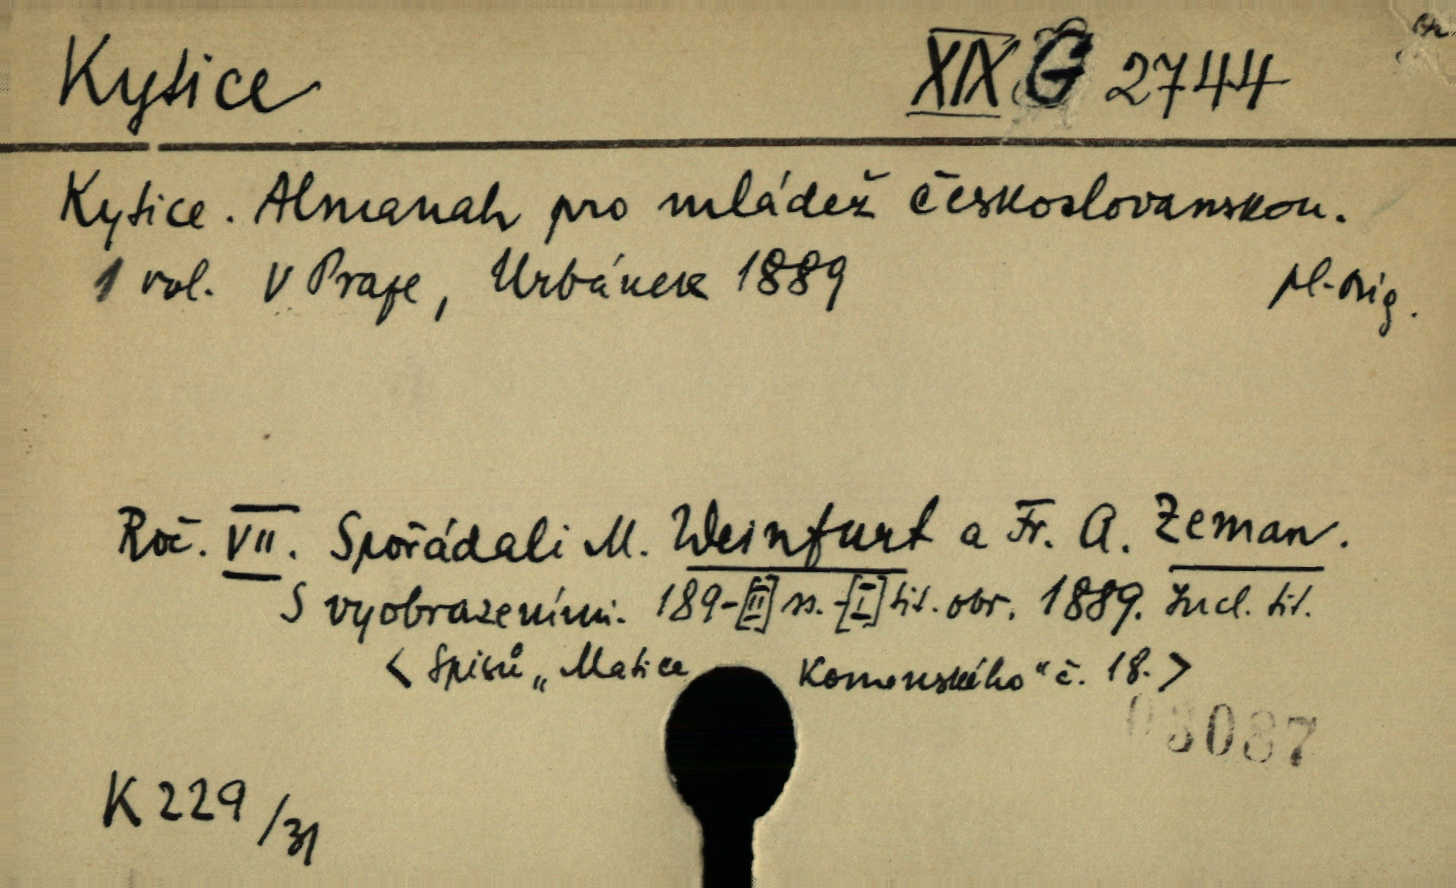 Kytice XIX G 2744
Kytice. Almanah pro mládež českoslovanskou.
1 vol. V Praze, Urbánek 1889 pl-orig.
Roč. VII. Spořádali M. Weinfurt a Fr. A. Zeman.
S vyobrazeními. 189-[II] ss.-[I] tit. obr. 1889. Incl. tit.
< Spisů „Matice Komenského" č. 18. >
03087
K 229/31